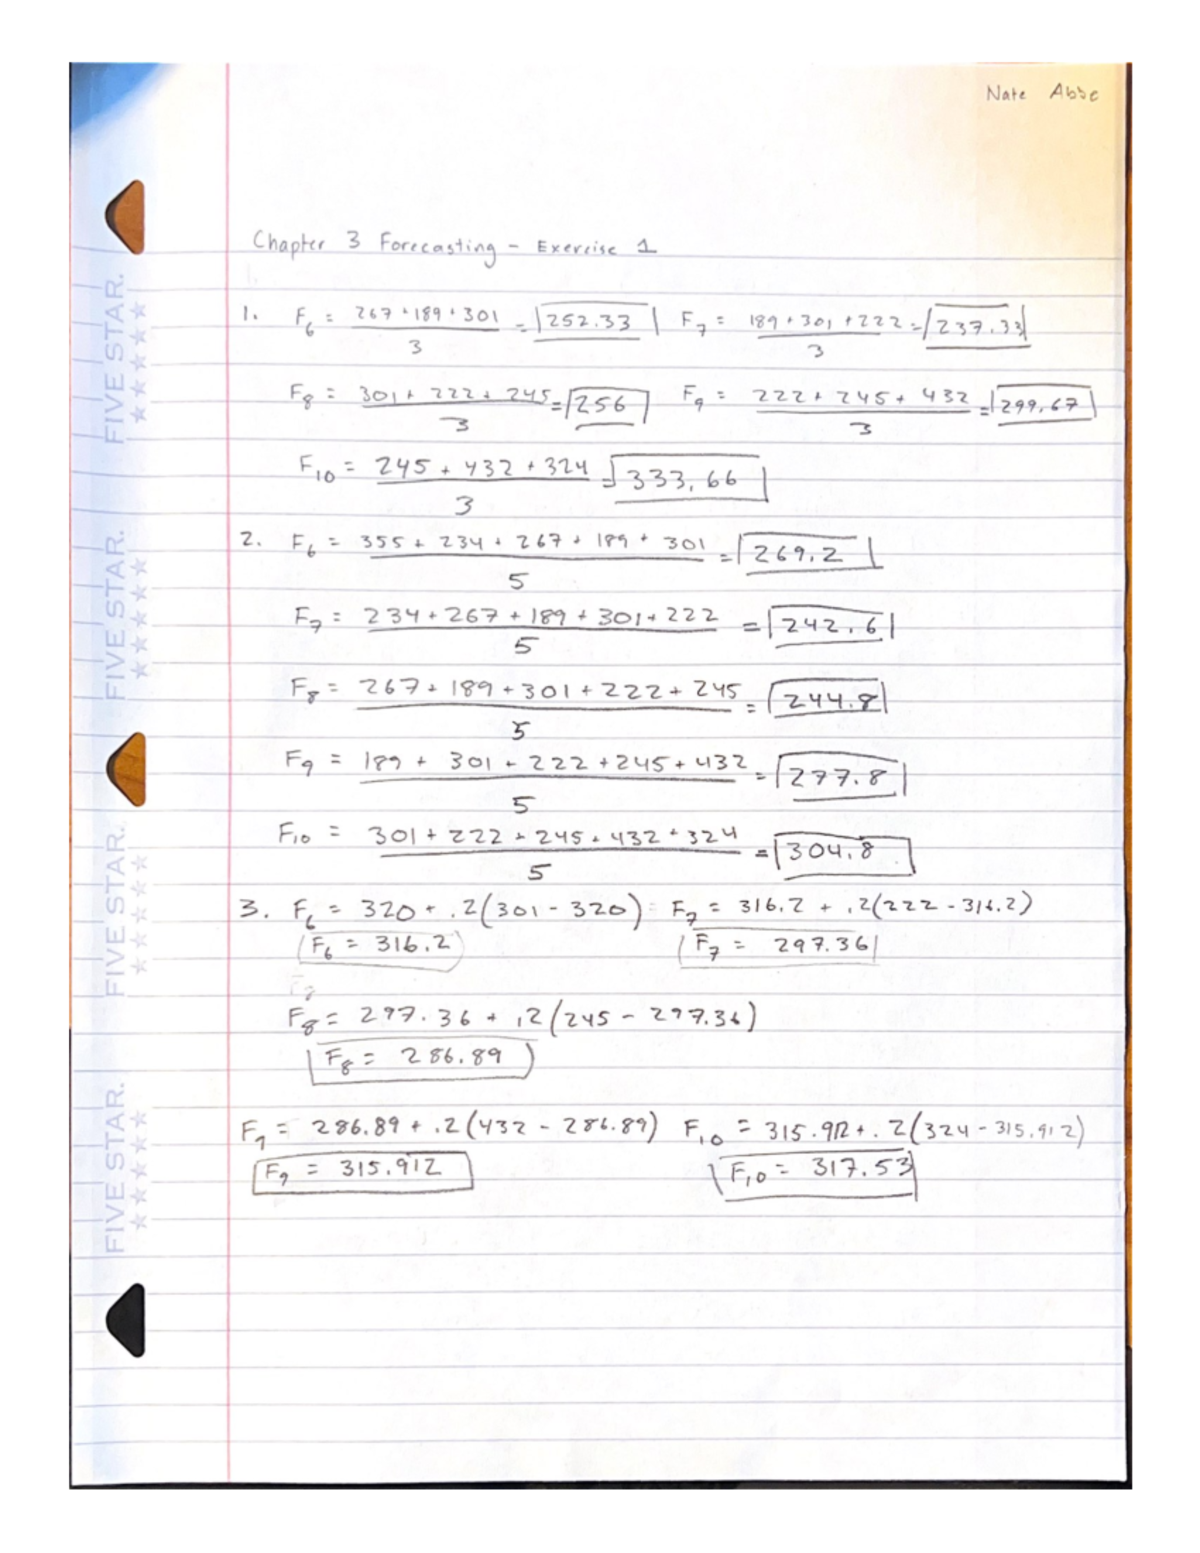 Nate Abbe
Chapter 3 Forecasting - Exercise 1
1. F6 = 267 + 189 + 301 / 3 = 252.33 F7 = 189 + 301 + 222 / 3 = 237.33
F8 = 301 + 222 + 245 / 3 = 256 F9 = 222 + 245 + 432 / 3 = 299.67
F10 = 245 + 432 + 324 / 3 = 333.66
2. F6 = 355 + 234 + 267 + 189 + 301 / 5 = 269.2
F7 = 234 + 267 + 189 + 301 + 222 / 5 = 242.6
F8 = 267 + 189 + 301 + 222 + 245 / 5 = 244.8
F9 = 189 + 301 + 222 + 245 + 432 / 5 = 277.8
F10 = 301 + 222 + 245 + 432 + 324 / 5 = 304.8
3. F6 = 320 + .2(301 - 320) F7 = 316.2 + .2(222 - 316.2)
F6 = 316.2 F7 = 297.36
F8 = 297.36 + .2(245 - 297.36)
F8 = 286.89
F9 = 286.89 + .2(432 - 286.89) F10 = 315.912 + .2(324 - 315.912)
F9 = 315.912 F10 = 317.53
FIVE STAR.
FIVE STAR.
FIVE STAR.
FIVE STAR.